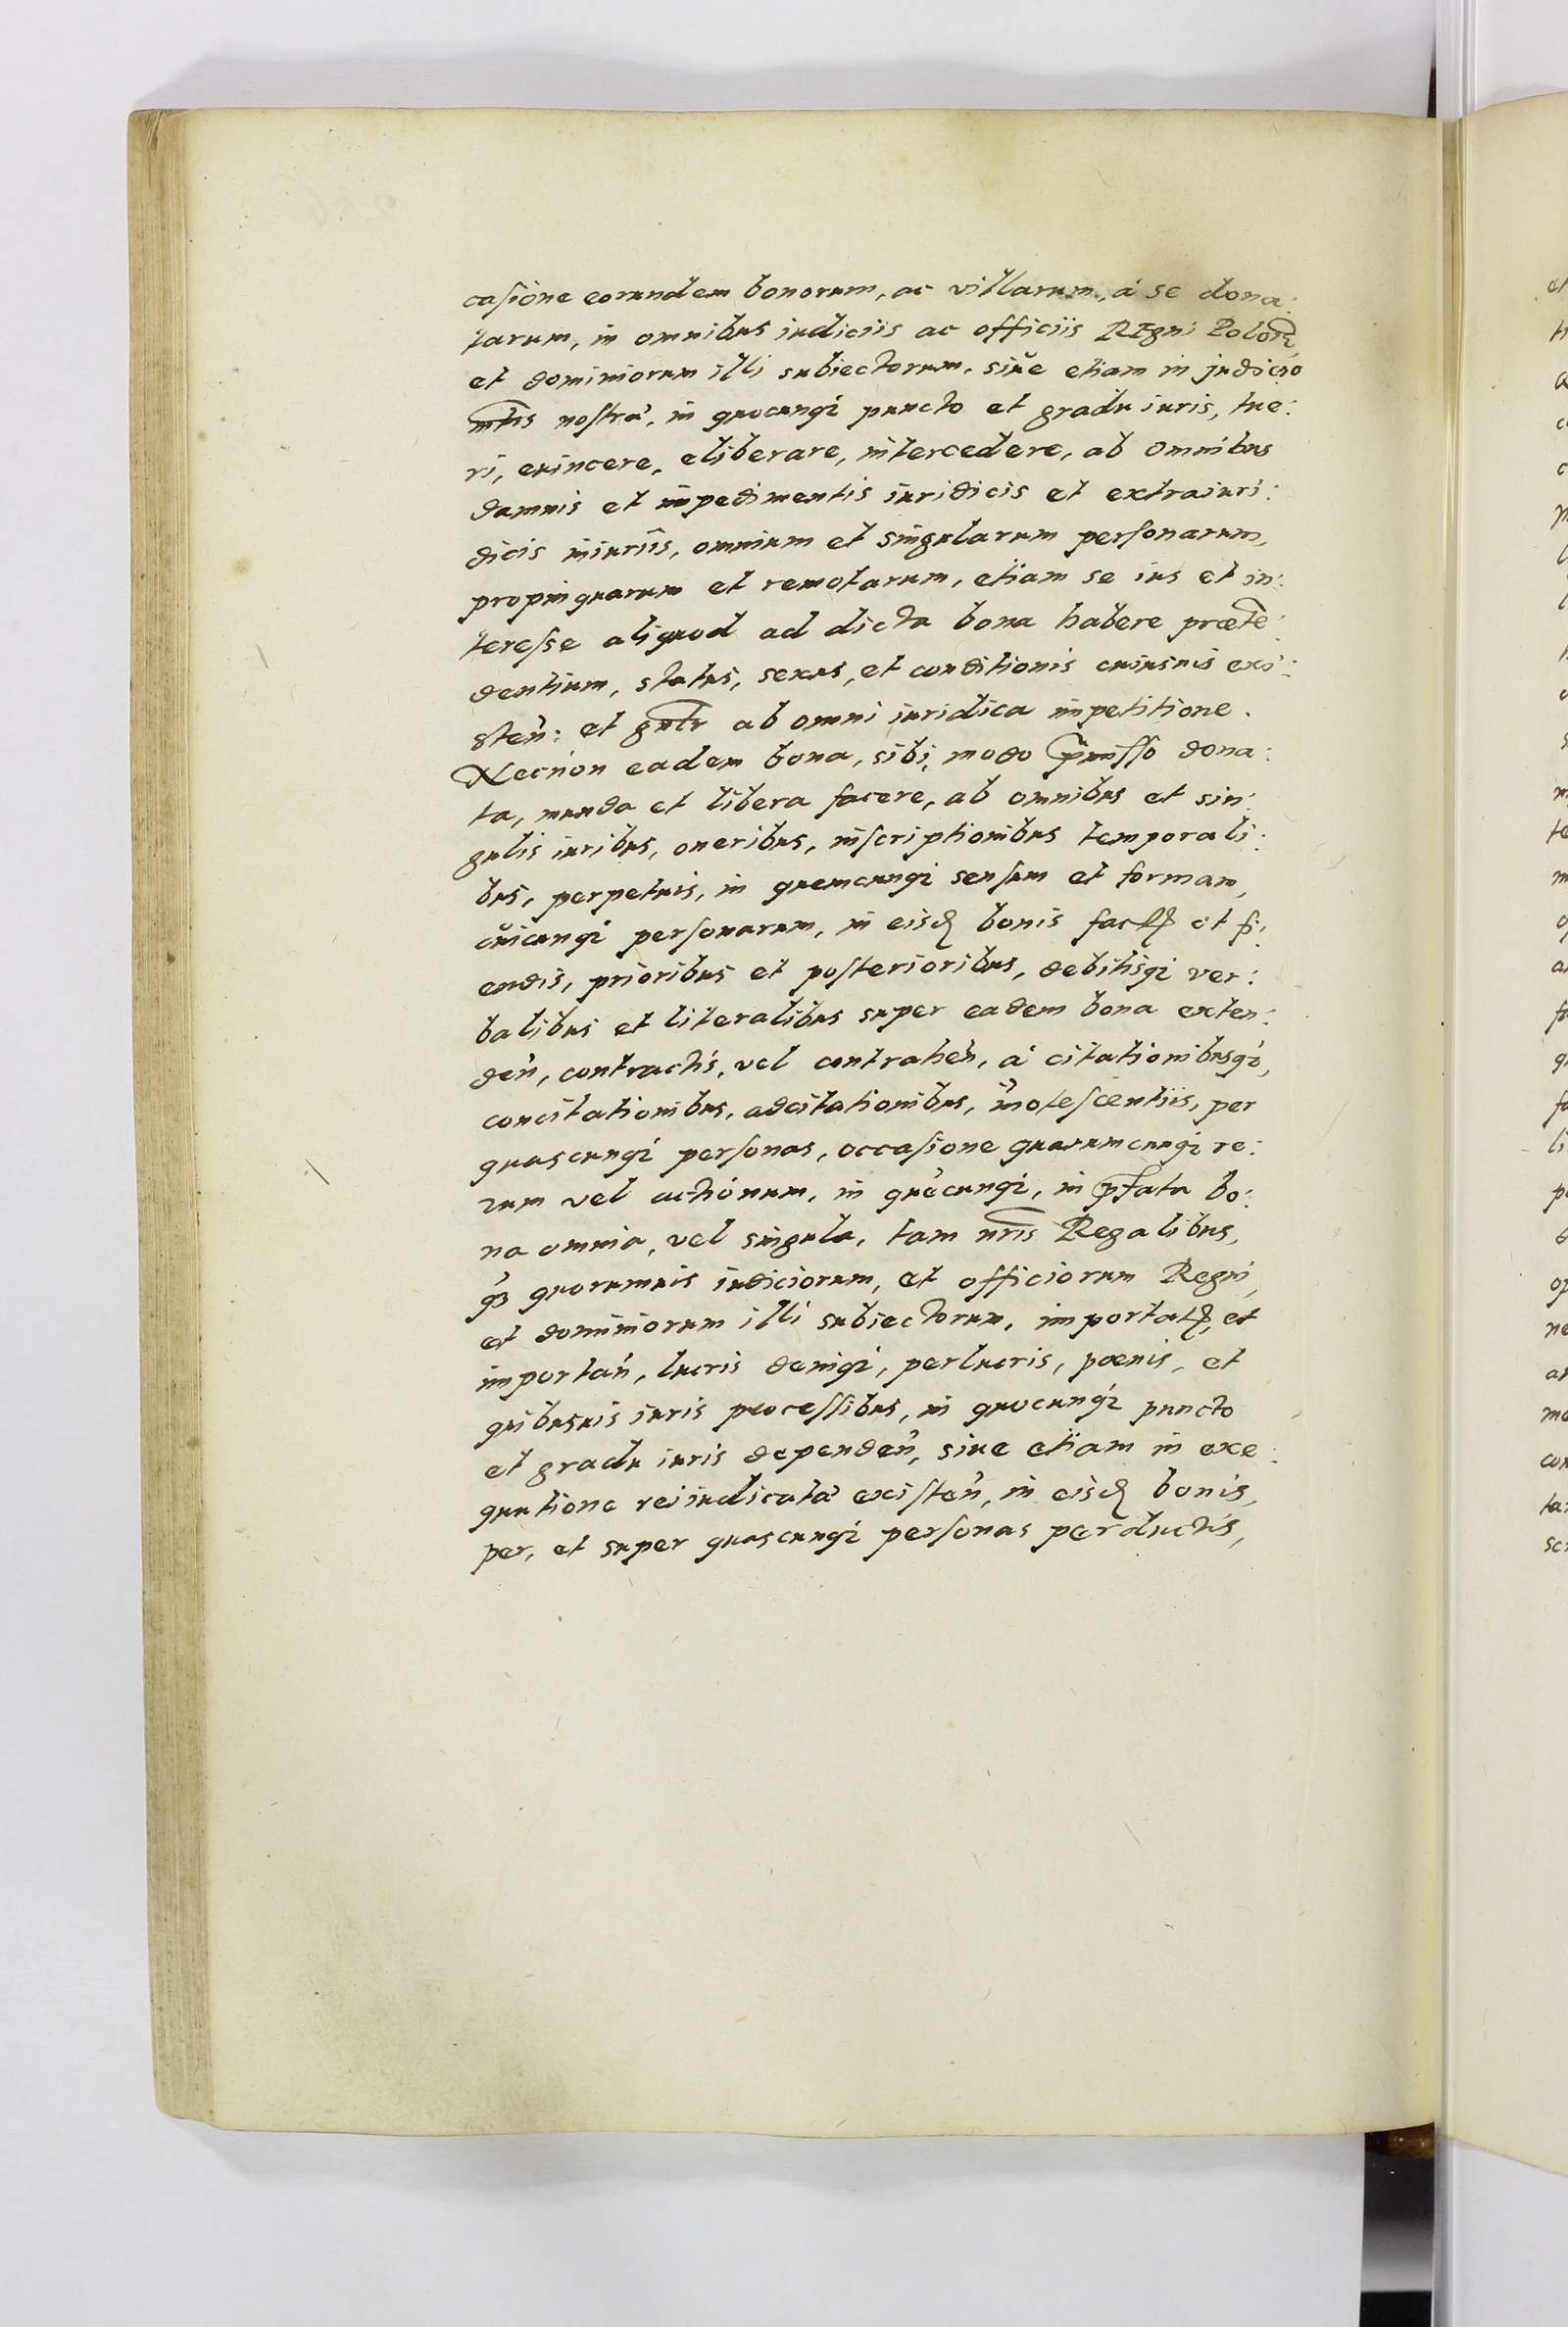 casione eorundem bonorum, ac villarum, à se dona:
tarum, in omnibus iudiciis ac officiis REgni Polon̄,
et dominiorum illi subiectorum, siue etiam in judicio
mtis nostra, in quocunqȝ puncto et gradu iuris, tue:
ri, euincere, eliberare, intercedere, ab omnibus
damnis et impedimentis iuridicis et extraiuri:
dicis iniuriis, omnium et singularum personarum,
propinquarum et remotarum, etiam se ius et in:
teresse aliquod ad dicta bona habere præte:
dentium, status, sexus, et conditionis cuiusuis exi:
sten̄: et gnlr ab omni iuridica impetitione.
Necnon eadem bona, sibi, modo pmisso dona:
ta, munda et libera facere, ab omnibus et sin:
gulis iuribus, oneribus, inscriptionibus temporali:
bus, perpetuis, in quemcunqȝ sensum et formam,
cuicunqȝ personarum, in eisd bonis fact et fi:
endis, prioribus et posterioribus, debitisqȝ ver:
balibus et literalibus super eadem bona exten:
den̄, contractis, vel contrahen̄, à citationibusqȝ,
concitationibus, adcitationibus, inotescentiis, per
quascunqȝ personas, occasione quarumcunqȝ re:
rum vel actionum, in quecunqȝ, in pfata bo:
na omnia, vel singula, tam nris Regalibus,
qȝ quorumuis iudiciorum, et officiorum Regni,
et dominiorum illi subiectorum, importat, et
importan̄, lucris deniqȝ, perlucris, poenis, et
quibusuis iuris processibus, in quocunqȝ puncto
et gradu iuris dependen̄, siue etiam in exe:
quutione reiiudicata existen̄, in eisd bonis,
per, et super quascunqȝ personas perductis,